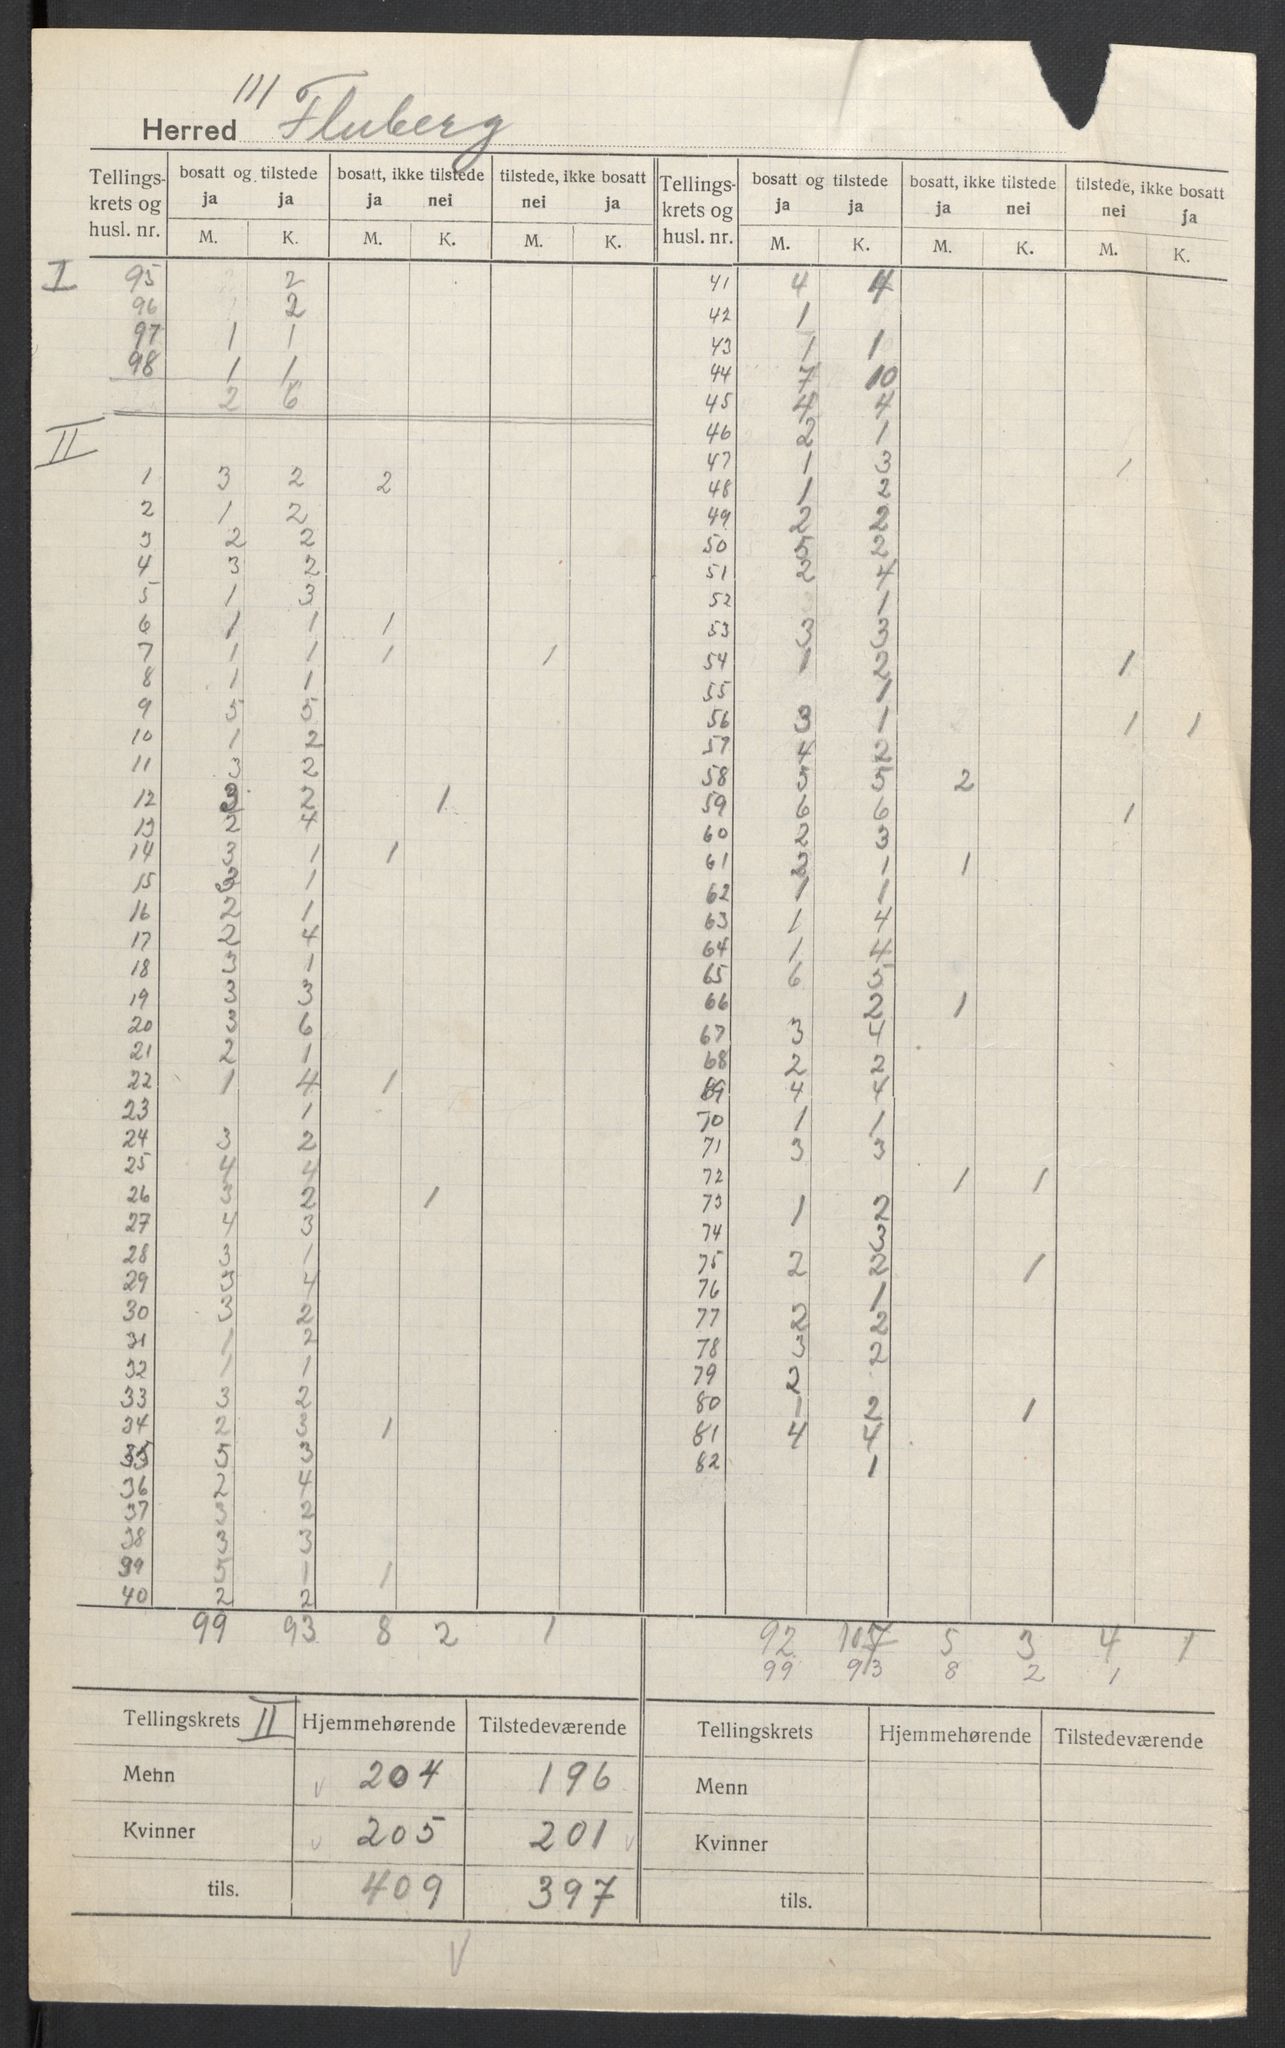 III
Herred Fluberg
Tellings- krets og husl. nr. | bosatt og tilstede ja ja M. K. | bosatt, ikke tilstede ja nei M. K. | tilstede, ikke bosatt nei ja M. K. | Tellings- krets og husl. nr. | bosatt og tilstede ja ja M. K. | bosatt, ikke tilstede ja nei M. K. | tilstede, ikke bosatt nei ja M. K.
I
95 | | 2
96 | | 2
97 | 1 | 1
98 | 1 | 1
2 | 6
II
1 | 3 | 2 | 2
2 | 1 | 2
3 | 2 | 2
4 | 3 | 2
5 | 1 | 3
6 | 1 | 1 | 1
7 | 1 | 1 | 1 | | 1
8 | 1 | 1
9 | 5 | 5
10 | 1 | 2
11 | 3 | 2
12 | 3 | 2 | | 1
13 | 2 | 4
14 | 3 | 1 | 1
15 | | 1
16 | 2 | 1
17 | 2 | 4
18 | 3 | 1
19 | 3 | 3
20 | 3 | 6
21 | 2 | 1
22 | 1 | 4 | 1
23 | | 1
24 | 3 | 2
25 | 4 | 4
26 | 3 | 2 | | 1
27 | 4 | 3
28 | 3 | 1
29 | 3 | 4
30 | 3 | 2
31 | 1 | 2
32 | 1 | 1
33 | 3 | 2
34 | 2 | 3 | 1
35 | 5 | 3
36 | 2 | 4
37 | 3 | 2
38 | 3 | 3
39 | 5 | 1 | 1
40 | 2 | 2
99 | 93 | 8 | 2 | 1
41 | 4 | 4
42 | 1
43 | 1 | 1
44 | 7 | 10
45 | 4 | 4
46 | 2 | 1
47 | 1 | 3 | | | 1
48 | 1 | 2
49 | 2 | 2
50 | | 2
51 | 2 | 4
52 | | 1
53 | 3 | 3
54 | 1 | 2 | | | 1
55 | | 1
56 | 3 | 1 | | | 1 | 1
57 | 4 | 2
58 | | | 2
59 | 6 | 6 | | | 1
60 | 2 | 3
61 | 2 | 1 | 1
62 | 1 | 1
63 | 1 | 4
64 | 1 | 4
65 | 6 | 5
66 | | 2 | 1
67 | 3 | 4
68 | 2 | 2
69 | 4 | 4
70 | 1 | 1
71 | 3 | 3
72 | | | 1 | 1
73 | 1 | 2
74 | | 3
75 | 2 | 2 | | 1
76 | | 1
77 | 2 | 2
78 | 3 | 2
79 | 2
80 | 1 | 2 | | 1
81 | 4 | 4
82 | | 1
92 | 107 | 5 | 3 | 4 | 1
99 | 93 | 8 | 2 | 1
Tellingskrets II | Hjemmehørende | Tilstedeværende
Menn | 204 | 196
Kvinner | 205 | 201
tils. | 409 | 397
Tellingskrets | Hjemmehørende | Tilstedeværende
Menn
Kvinner
tils.